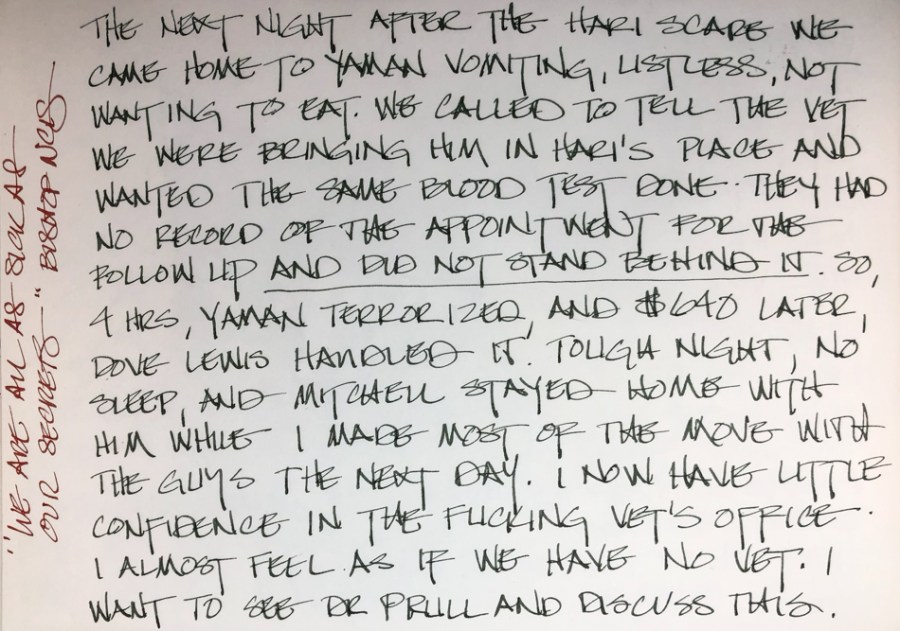 THE NEXT NIGHT AFTER THE HARI SCARE WE
CAME HOME TO YAMAN VOMITING, LISTLESS, NOT
WANTING TO EAT. WE CALLED TO TELL THE VET
WE WERE BRINGING HIM IN HARI'S PLACE AND
WANTED THE SAME BLOOD TEST DONE. THEY HAD
NO RECORD OF THE APPOINTMENT FOR THE
FOLLOW UP AND DID NOT STAND BEHIND IT. SO,
4 HRS, YAMAN TERRORIZED, AND $640 LATER,
DOVE LEWIS HANDLED IT. TOUGH NIGHT, NO
SLEEP, AND MITCHELL STAYED HOME WITH
HIM WHILE I MADE MOST OF THE MOVE WITH
THE GUYS THE NEXT DAY. I NOW HAVE LITTLE
CONFIDENCE IN THE FUCKING VET'S OFFICE.
I ALMOST FEEL AS IF WE HAVE NO VET. I
WANT TO SEE DR PRULL AND DISCUSS THIS.
"WE ARE ALL AS SICK AS
OUR SECRETS"